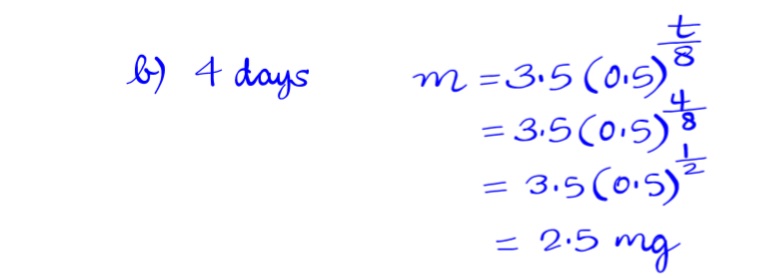 b) 4 days m = 3.5 (0.5)^(t/8)
= 3.5 (0.5)^(4/8)
= 3.5 (0.5)^(1/2)
= 2.5 mg